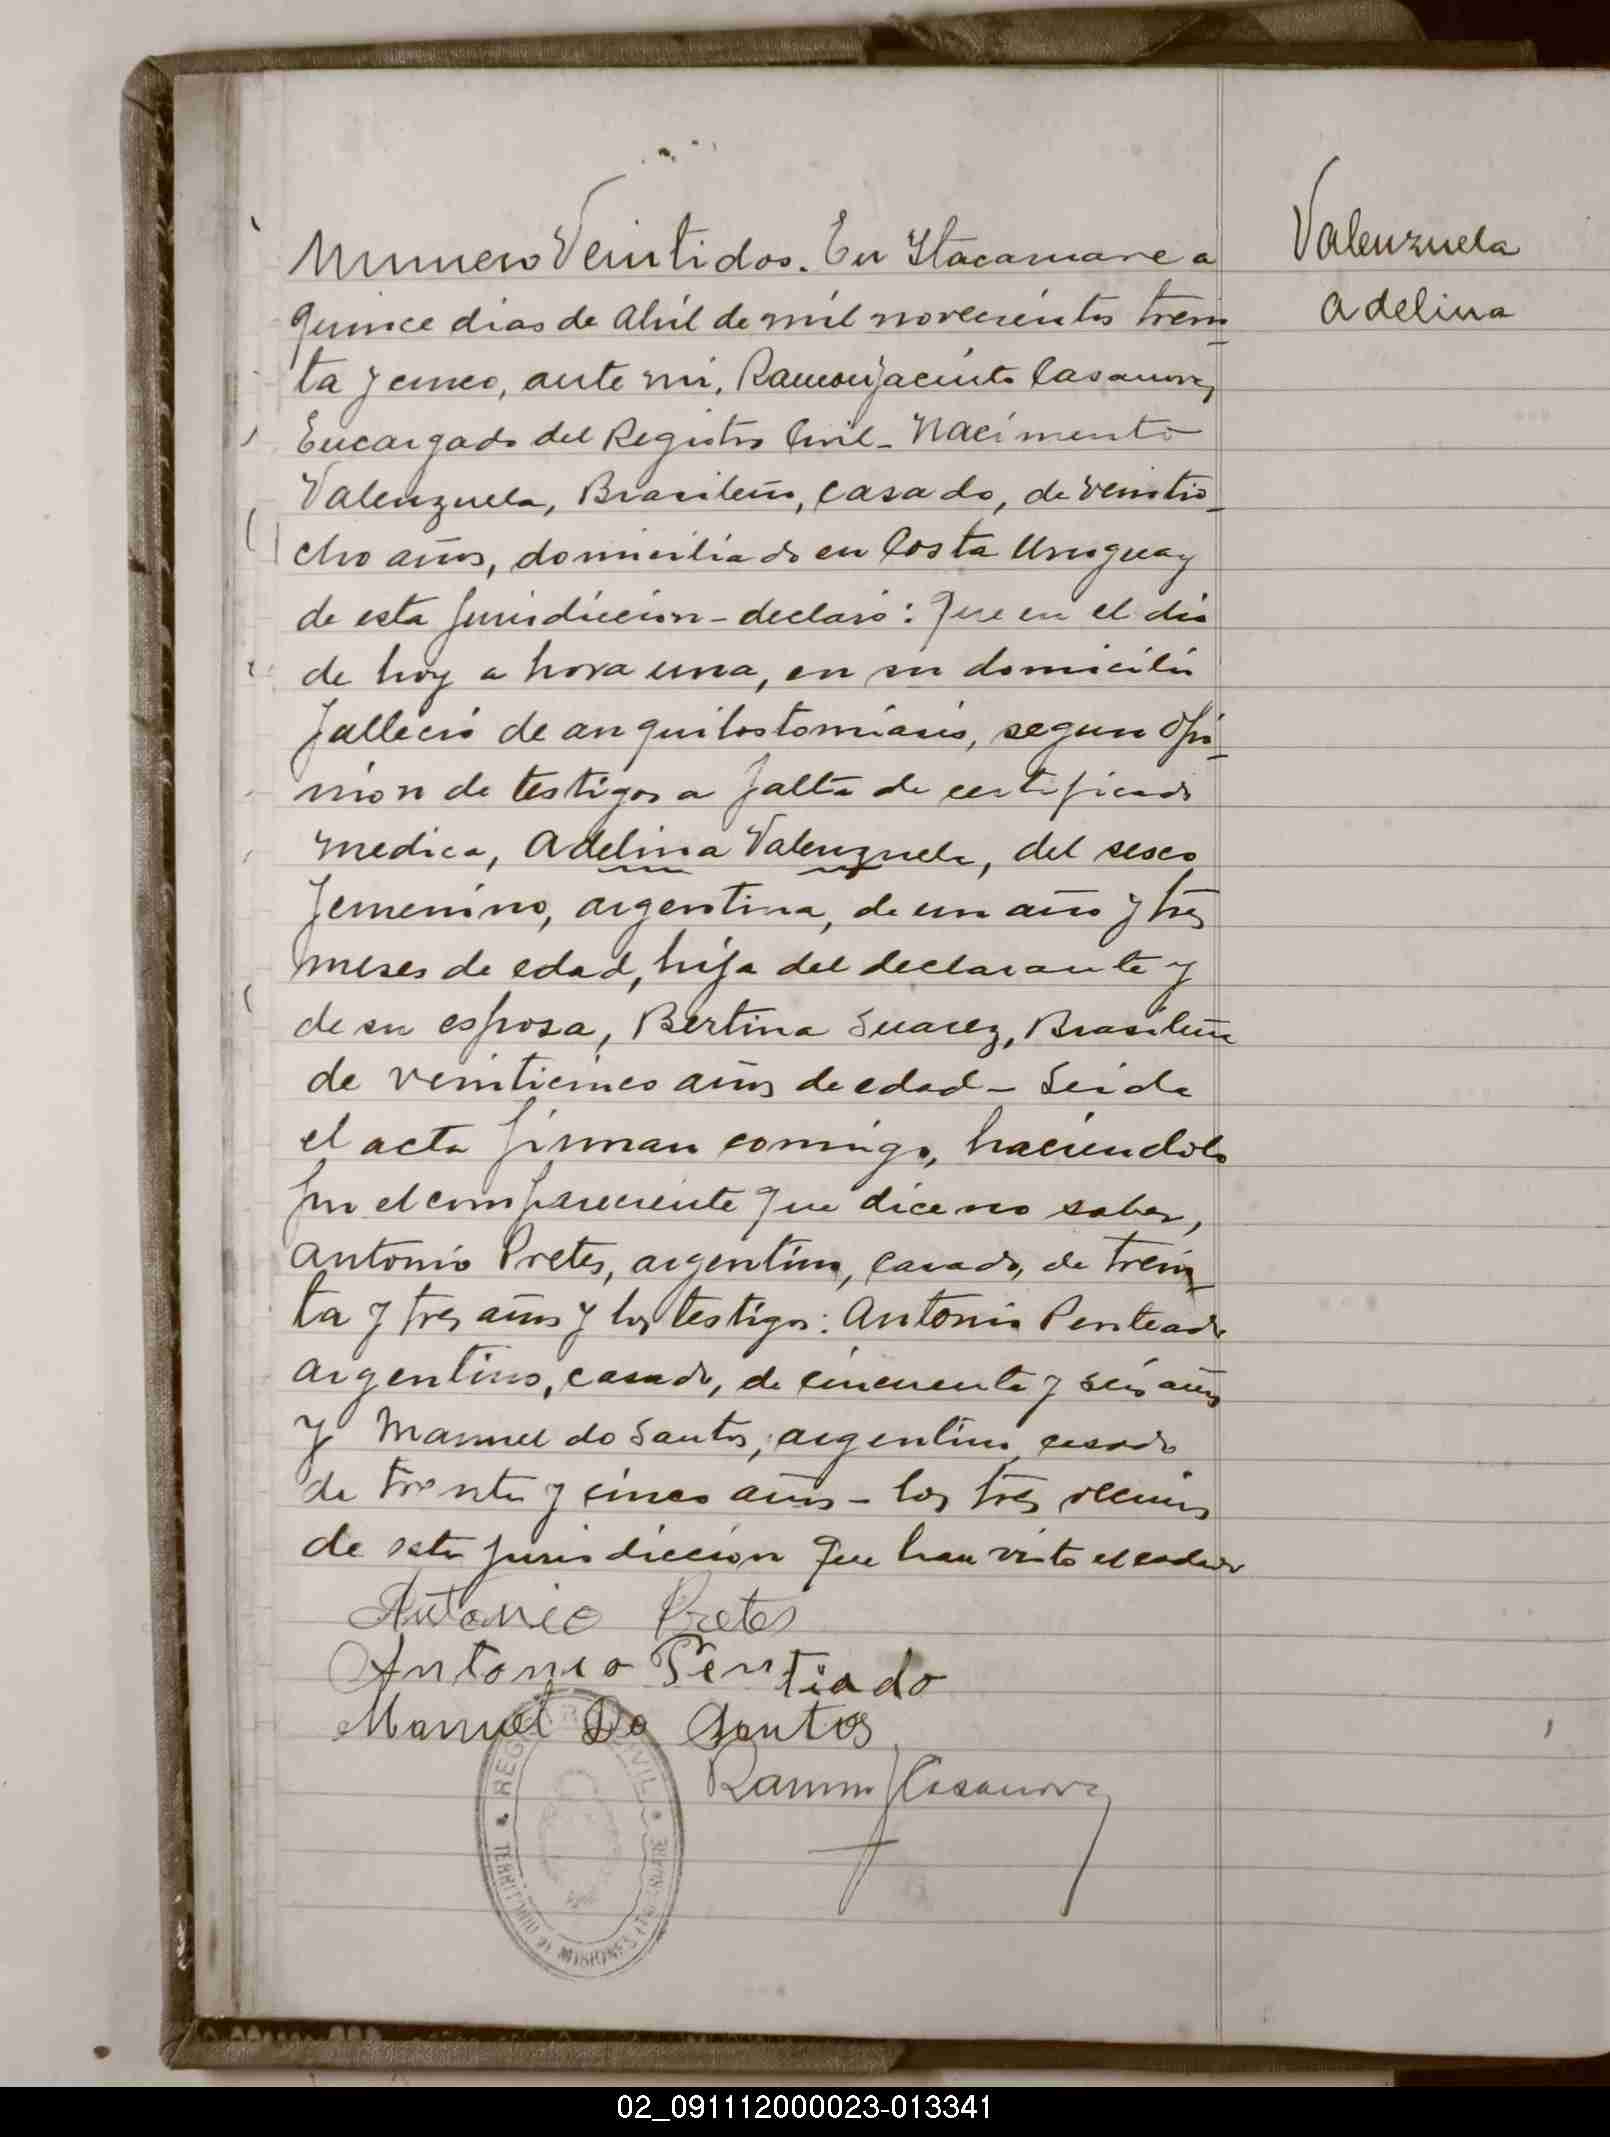 Valenzuela
Adelina
Numero Veintidos. En Itacaruare a
quince dias de Abril de mil novecientos trein-
ta y cinco, ante mi, Ramon Jacinto Casanova,
Encargado del Registro Civil - Nacimento
Valenzuela, Brasileño, casado, de veintio-
cho años, domiciliado en Costa Uruguay
de esta jurisdiccion - declaró: Que en el dia
de hoy a hora una, en su domicilio
falleció de anquilostomiasis, segun opi-
nion de testigos a falta de certificado
medico, Adelina Valenzuela, del sexo
femenino, argentina, de un año y tres
meses de edad, hija del declarante y
de su esposa, Bertina Suarez, Brasileña
de veinticinco años de edad - Leida
el acta firman conmigo, haciendolo
por el compareciente que dice no saber,
Antonio Pretes, argentino, casado, de trein-
ta y tres años y los testigos: Antonio Penteado
argentino, casado, de cincuenta y seis años
y Manuel do Santos, argentino, casado
de trenta y cinco años - los tres vecinos
de esta jurisdiccion que han visto el cadaver
Antonio Pretes
Antonio Pentiado
Manuel Do Santos
Ramon J Casanova
REGISTRO CIVIL
TERRITORIO DE MISIONES
02_091112000023-013341